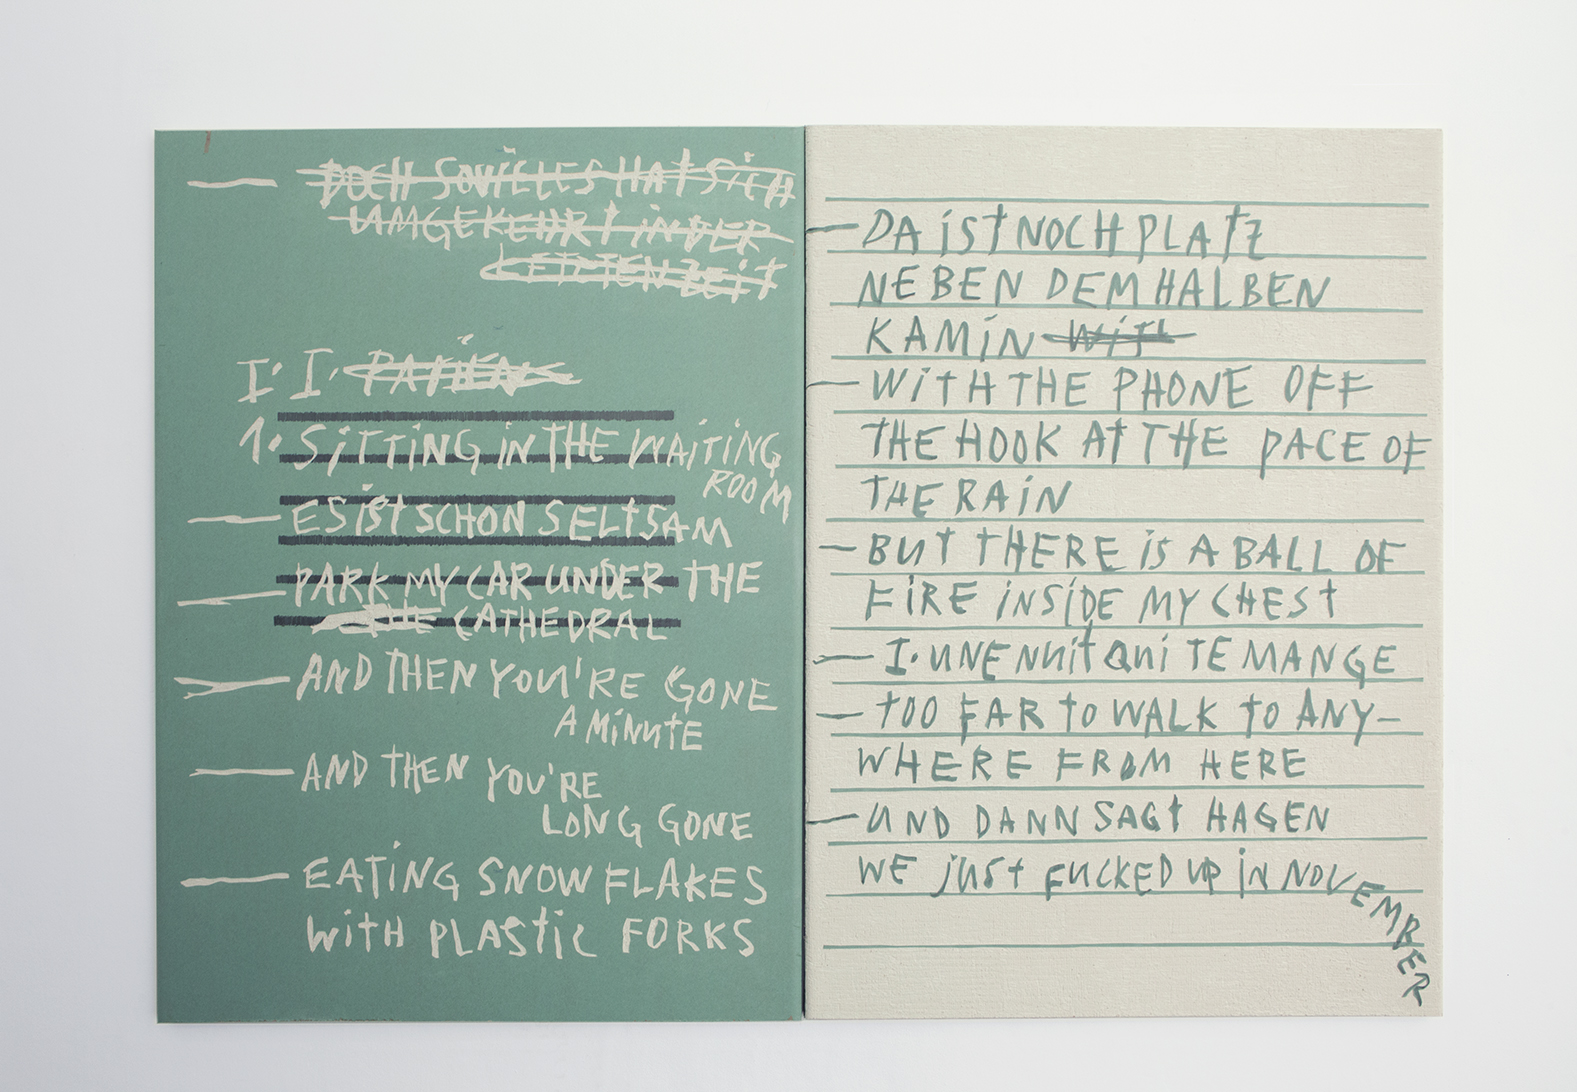 — DOCH SOVIELES HAT SICH
UMGEKEHRT IN DER
LETZTEN ZEIT
I. I.
1. SITTING IN THE WAITING
ROOM
— ES IST SCHON SELTSAM
— PARK MY CAR UNDER THE
CATHEDRAL
— AND THEN YOU'RE GONE
A MINUTE
— AND THEN YOU'RE
LONG GONE
— EATING SNOWFLAKES
WITH PLASTIC FORKS
— DA IST NOCH PLATZ
NEBEN DEM HALBEN
KAMIN
— WITH THE PHONE OFF
THE HOOK AT THE PACE OF
THE RAIN
— BUT THERE IS A BALL OF
FIRE INSIDE MY CHEST
— I. UNE NUIT QUI TE MANGE
— TOO FAR TO WALK TO ANY-
WHERE FROM HERE
— UND DANN SAGT HAGEN
WE JUST FUCKED UP IN NOVEMBER